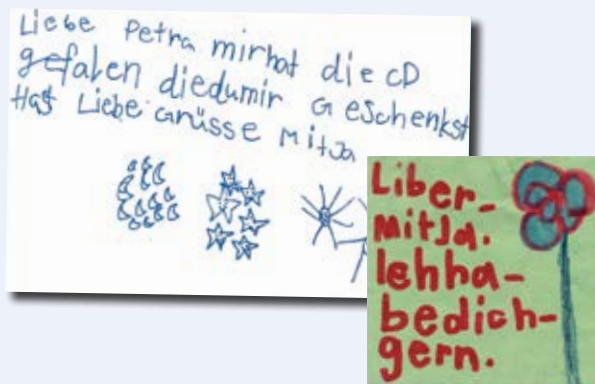 Liebe Petra mirhat die CD
gefalen diedumir Geschenkst
Hast Liebe Grüsse Mitja
Liber-
mitJa.
Iehha-
bedich-
gern.